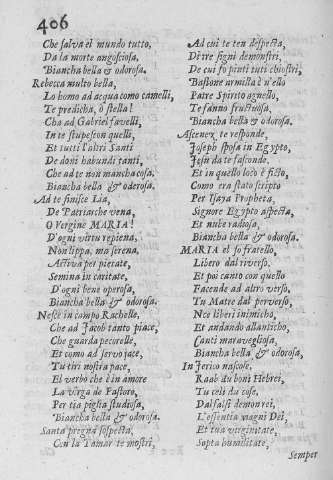 406
Che salva el mundo tutto,
Da la morte angosciosa,
Biancha bella & odorosa.
Rebecca multo bella,
Lo homo ad acqua como camelli,
Te predicha, ò stella!
Cha ad Gabriel favelli,
In te stupescon quelli,
Et tutti l'altri Santi
De doni habundi tanti
Che ad te non mancha cosa.
Biancha bella & oderosa.
Ad te finisce Lia,
De Patriarche vena,
O Vergine MARIA!
D'ogni virtu repiena,
Non lippa, ma serena,
Activa per pietate,
Semina in caritate,
D'ogni bene operosa,
Biancha bella & odorosa.
Nesce in campo Rachelle,
Che ad Jacob tanto piace,
Che guarda pecorelle,
Et como ad servo jace,
Tu tiri nostra pace,
El verbo che è in amore
La virga de Pastoro,
Per tia piglia studiosa,
Biancha bella & odorosa.
Santa pregna sospecta,
Con la Tamar te mostri,
Ad cui te ten despecta,
Di tre signi demonstri,
De cui fo pinti tuti chiostri,
Bastone armilla è n'ello
Patre Spirito agnello,
Te fanno fructuosa,
Biancha bella & odorosa.
Ascenez te responde,
Joseph sposa in Egypto,
Jesù da te fasconde.
Et in quello locò è ficto,
Como era stato scripto
Per Isaya Propheta,
Signore Egypto aspecta,
Et nube radiosa,
Biancha bella & odorosa.
MARIA el so fratello,
Libero dal riverso.
Et poi canto con quello
Facende ad altro verso,
Tu Matre dal perverso,
Nce liberi inimicho,
Et andando allantichо,
Canti maravegliosa,
Biancha bella & odorosa.
In Jerico nascose,
Raab du boni Hebrei,
Tu celi du cose,
Dal falsi demon rei,
L'essentia viagni Dei,
Et tua verginitate,
Sopta humilitate,
Semper